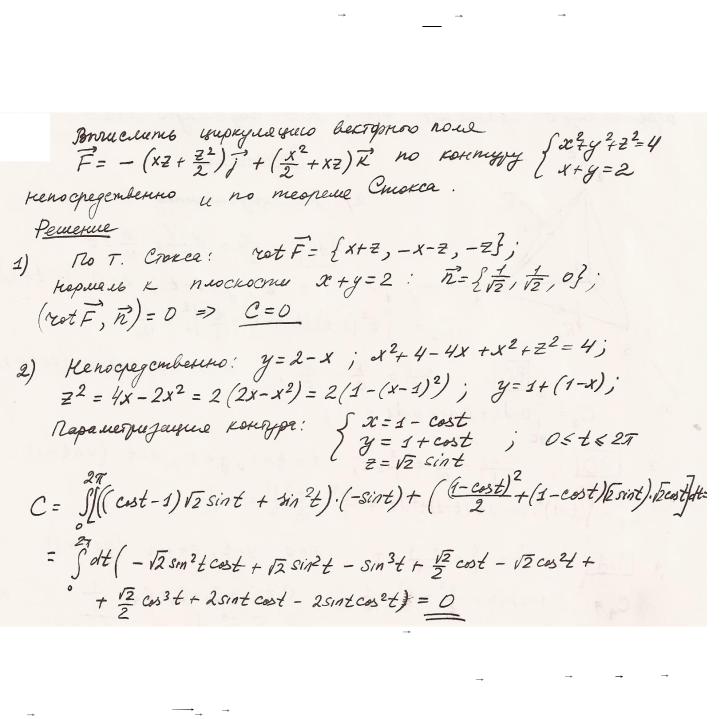 Вычислить циркуляцию векторного поля
F⃗ = - (xz + z²/2) j⃗ + (x²/2 + xz) k⃗ по контуру { x²+y²+z²=4
x+y=2
непосредственно и по теореме Стокса.
Решение
1) По т. Стокса: rot F⃗ = {x+z, -x-z, -z};
Нормаль к плоскости x+y=2 : n⃗ = {1/√2, 1/√2, 0};
(rot F⃗, n⃗) = 0 => C=0
2) Непосредственно: y=2-x ; x²+4-4x+x²+z²=4;
z² = 4x-2x² = 2(2x-x²) = 2(1-(x-1)²) ; y=1+(1-x);
Параметризация контура: { x=1-cost
y=1+cost ; 0≤t≤2π
z=√2 sint
C = ∫₀^2π [((cost-1)√2 sint + sin²t)·(-sint) + ((1-cost)²/2 + (1-cost)√2 sint)·√2 cost] dt=
= ∫₀^2π dt(-√2 sin²t cost + √2 sin²t - sin³t + √2/2 cost - √2 cos²t +
+ √2/2 cos³t + 2sint cost - 2sint cos²t) = 0